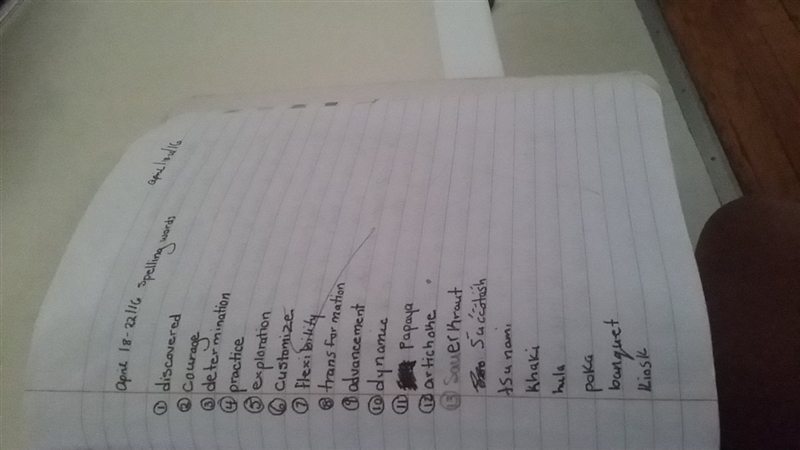 April 18-22/16 spelling words
① discovered
② courage
③ determination
④ practice
⑤ exploration
⑥ customize
⑦ flexibility
⑧ transformation
⑨ advancement
⑩ dynamic
⑪ Papaya
⑫ artichoke
⑬ Sauerkraut
Succotash
tsunami
khaki
hula
poka
banquet
kiosk